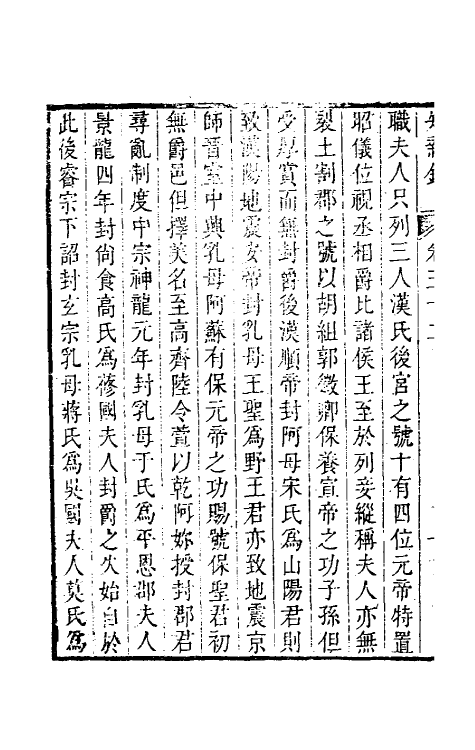 職夫人只列三人漢氏後宮之號十有四位元帝特置
昭儀位視丞相爵比諸侯王至於列妾縱稱夫人亦無
裂土割郡之號以胡組郭徵卿保養宣帝之功子孫但
受厚賞而無封爵後漢順帝封阿母宋氏為山陽君則
致漢陽地震安帝封乳母王聖為野王君亦致地震京
師晉室中興乳母阿蘇有保元帝之功賜號保聖君初
無爵邑但擇美名至高齊陸令萱以乾阿妳授封郡君
尋亂制度中宗神龍元年封乳母于氏為平恩郡夫人
景龍四年封尙食高氏為蓚國夫人封爵之失始自於
此後睿宗下詔封玄宗乳母蔣氏為吳國夫人莫氏為